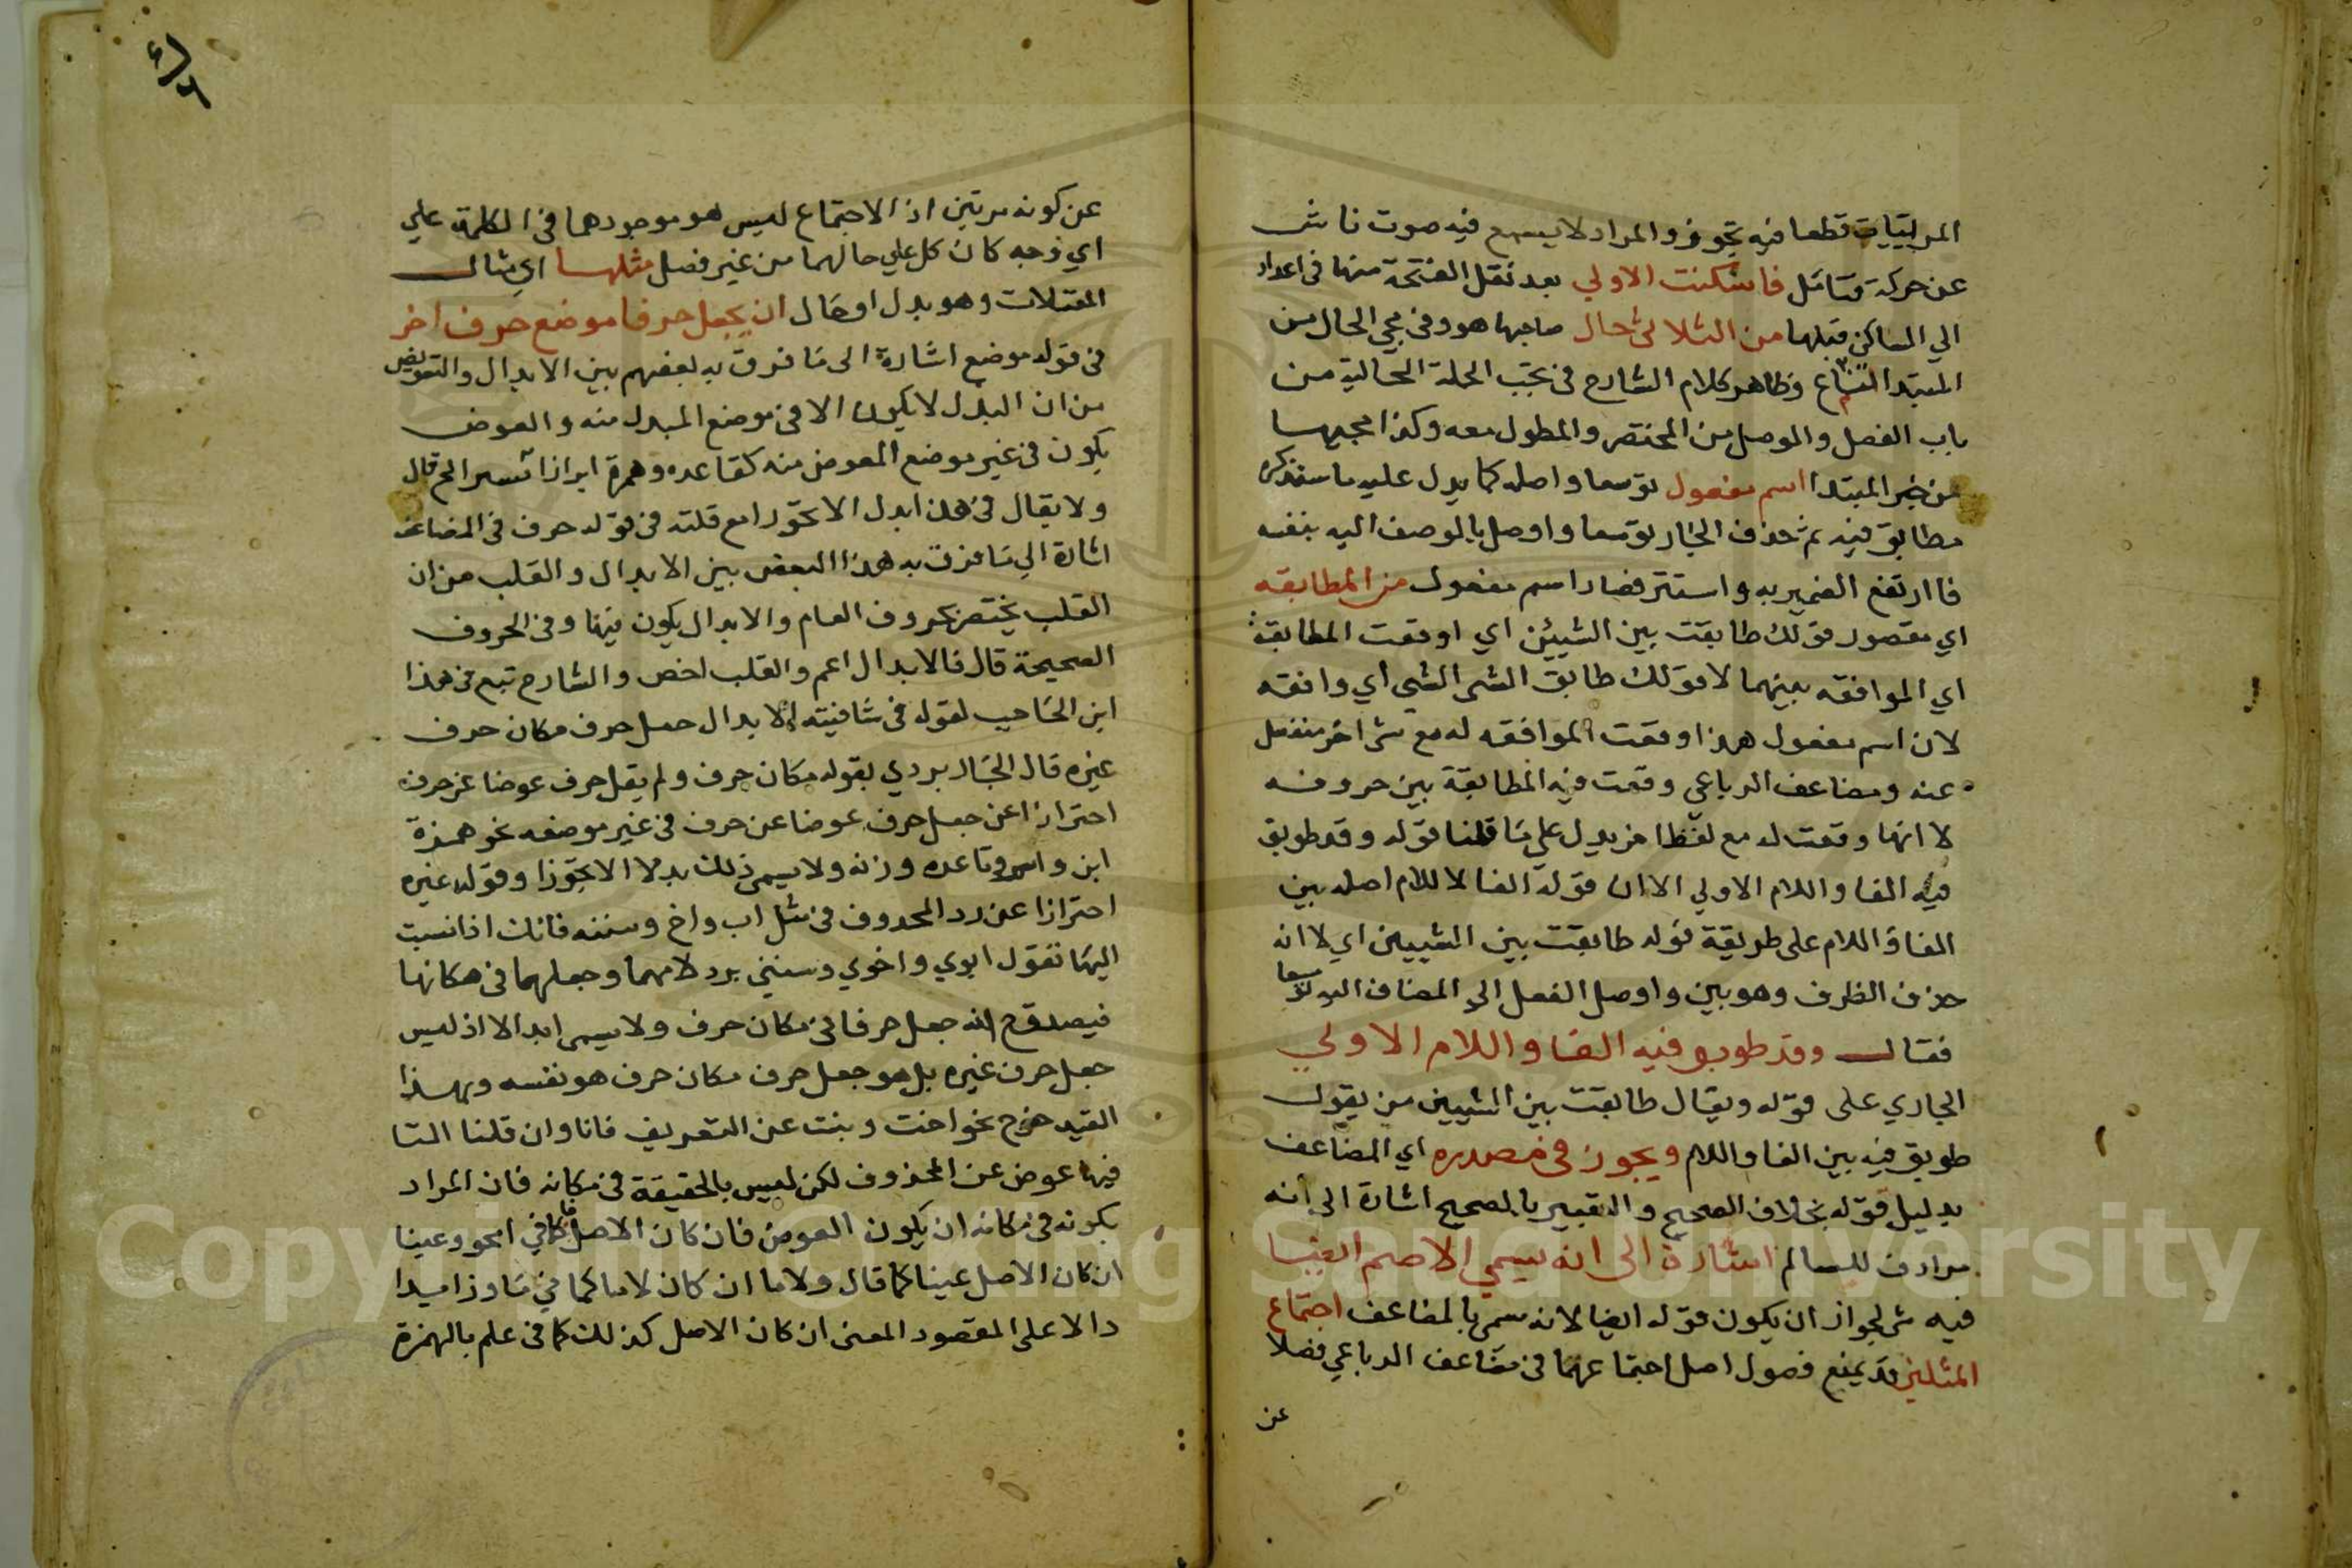 المرلبتيات قطعا فيه تجوز والمراد لا يسمع فيه صوت ناش
عن حركة متامل فاسكنت الاولي بعد نقل الفتحة منها في اعداد
الي الساكن قبلها من الثلاثي حال صاحبها هو وفي مجي الحال من
المبتدا وظاهر كلام الشارح في الجملة الحالية من
باب الفصل والوصل من المختصر والمطول معه وكذا مجيها
من خبر المبتدا اسم مفعول توسعا واصله كما يدل عليه ما سنذكره
مطابق فيه ثم حذف الجار توسعا واوصل بالوصف اليه بنفسه
فاارتفع الضمير به واستتر فصار اسم مفعول من المطابقه
اي مقصور قولك طابقت بين الشيئين اي اوقعت المطابقة
اي الموافقه بينهما لا قولك طابق الشي الشي اي وافقه
لان اسم مفعول هذا وقعت الموافقه له مع شي اخر منفصل
عنه ومضاعف الرباعي وقعت فيه المطابقة بين حروفه
لا انها وقعت له مع لفظ اخر يدل علي ما قلنا قوله وقد طوبق
فيه الفا واللام الاولي الا ان قوله الفا لا للام اصله بين
الفا واللام على طريقة قوله طابقت بين الشيين اي لا انه
حذف الظرف وهو بين واوصل الفعل الي المضاف اليه توسعا
فقال وقد طوبق فيه الفا واللام الاولي
الجاري على قوله ويقال طابقت بين الشيين من يقول
طوبق فيه بين الفا واللام ويجوز في مصدره اي المضاعف
بدليل قوله بخلاف الصحيح والتعبير بالصحيح اشارة الى انه
مرادف للسالم اشارة الى انه يسمي الاصم ايضا
فيه شي لجواز ان يكون قوله ايضا لانه سمي بالمضاعف اجتماع
المثلين قد يمنع فصول اصل اجتماعهما في مضاعف الرباعي فضلا
عن
عن كونه مرتين اذ الاجتماع ليس هو موجودهما في الكلمة علي
اي وجه كان كل علي حالهما من غير فصل مثلهسا اي مثال
المعتلات وهو بدل او حال ان يجعل حرفا موضع حرف اخر
في قوله موضع اشارة الى ما فرق به بعضهم بين الابدال والتعويض
من ان البدل لا يكون الا في موضع المبدل منه والعوض
يكون في غير موضع المعوض منه كتا عده وهمزة ابن قال
ولا يقال في هذا بدل الا تجوزا مع قلته في قوله حرف في المضاعف
اشارة الي ما فرق به هذا البعض بين الابدال والقلب من ان
القلب يختص بحروف العام والابدال يكون فيها وفي الحروف
الصحيحة قال فالابدال اعم والقلب اخص والشارح تبع في هذا
ابن الحاجب لقوله في شافيته الابدال جعل حرف مكان حرف
غيره قال الجاربردي بقوله مكان حرف ولم يقل حرف عوضا عن حرف
احترازا عن جعل حرف عوضا عن حرف في غير موضعه نحو همزة
ابن واسم وتا عده وزنه ولا يسمى ذلك بدلا الا تجوزا وقوله غيره
احترازا عن رد المحدوف في مثل اب واخ وسنه فانك اذا نسبت
اليها تقول ابوي واخوي وسنني برد لامهما وجعلهما في مكانها
فيصدق ح انه جعل حرفا في مكان حرف ولا يسمى ابدالا اذ ليس
جعل حرف غيره بل هو جعل حرف مكان حرف هو نفسه وبهذا
القيد خرج نحو اخت وبنت عن التعريف فانا وان قلنا التا
فيها عوض عن المحذوف لكن ليس بالحقيقة في مكانه فان المراد
بكونه في مكانه ان يكون العوض فان كان الاصل كما في وعينا
ان كان الاصل عينا كما قال ولاما ان كان لاما كما في ما وزاميدا
دالا على المقصود المعنى ان كان الاصل كذلك كما في علم بالهمزة
Copyright © King Saud University